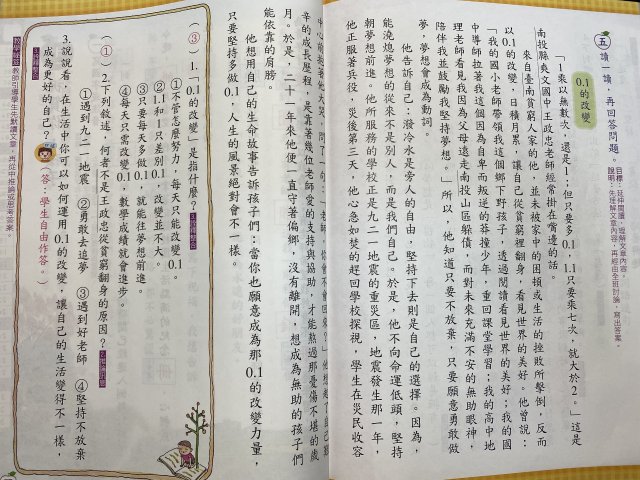 五 讀一讀，再回答問題。
目標：延伸閱讀，理解文章內容。
說明：先理解文章內容，再經由全班討論，寫出答案。
0.1的改變
「1乘以無數次，還是1；但只要多0.1，1.1只要乘七次，就大於2。」這是
南投縣爽文國中王政忠老師經常掛在嘴邊的話。
來自臺南貧窮人家的他，並未被家中的困頓或生活的挫敗所擊倒，反而
以0.1的改變，日積月累，讓自己從貧窮裡翻身，看見世界的美好。他曾說：
「我的國小老師帶領我這個鄉下野孩子，透過閱讀看見世界的美好；我的國
中導師拉著我這個因為自卑而叛逆的莽撞少年，重回課堂學習；我的高中地
理老師看見我因為父母遠走南投山區躲債，而對未來充滿不安的無助眼神，
陪伴我並鼓勵我堅持夢想。」所以，他知道只要不放棄，只要願意勇敢做
夢，夢想會成為動詞。
他告訴自己：潑冷水是旁人的自由，堅持下去則是自己的選擇。因為，
能澆熄夢想的從來不是別人，而是我們自己。於是，他不向命運低頭，堅持
朝夢想前進。他所服務的學校正是九二一地震的重災區，地震發生那一年，
他正服著兵役，災後第三天，他心急如焚的趕回學校探視，學生在災民收容
辛的成長歷程，是靠著幾位老師愛的支持與協助，才能熬過那憂傷不堪的歲
月。於是，二十一年來他便一直守著偏鄉，沒有離開，想成為無助的孩子們
能依靠的肩膀。
他想用自己的生命故事告訴孩子們：當你也願意成為那0.1的改變力量，
只要堅持多做0.1，人生的風景絕對會不一樣。
（③）1.「0.1的改變」是指什麼？
①不管怎麼努力，每天只能改變0.1
②1.1和1只差別0.1，改變並不大。
③只要每天多做0.1，就能往夢想前進。
④每天只需改變0.1，數學成績就會進步。
（①）2.下列敘述，何者不是王政忠從貧窮翻身的原因？
①遇到九二一地震 ②勇敢去追夢 ③遇到好老師 ④堅持不放棄
3.說說看，在生活中你可以如何運用0.1的改變，讓自己的生活變得不一樣，
成為更好的自己？（答：學生自由作答。）
教師可引導學生先默讀文章，再從中推論或思考答案。